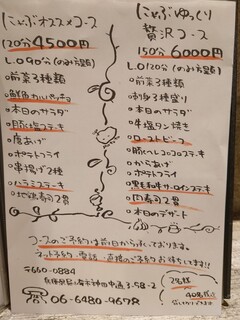 にゃぶオススメコース
120分4500円
L.O90分(のみ放題)
○前菜3種類
○鮮魚カルパッチョ
○本日のサラダ
○豚塩ステーキ
○唐あげ
○ポテトフライ
○串揚げ2種
○ハラミステーキ
○地鶏寿司2貫
にゃぶゆっくり
贅沢コース
150分6000円
L.O120分(のみ放題)
○前菜3種類
○刺身3種盛り
○本日のサラダ
○牛塩タン焼き
○ローストビーフ
○からあげ
○ポテトフライ
○黒毛和牛サーロインステーキ
○肉寿司2貫
○本日のデザート
コースのご予約は前日から承っております。
ネット予約・電話・直接のご予約お待ちしてます!!
〒660-0884
兵庫県尼崎市神田中通3-58-2
06-6480-9678
2名様
40名様